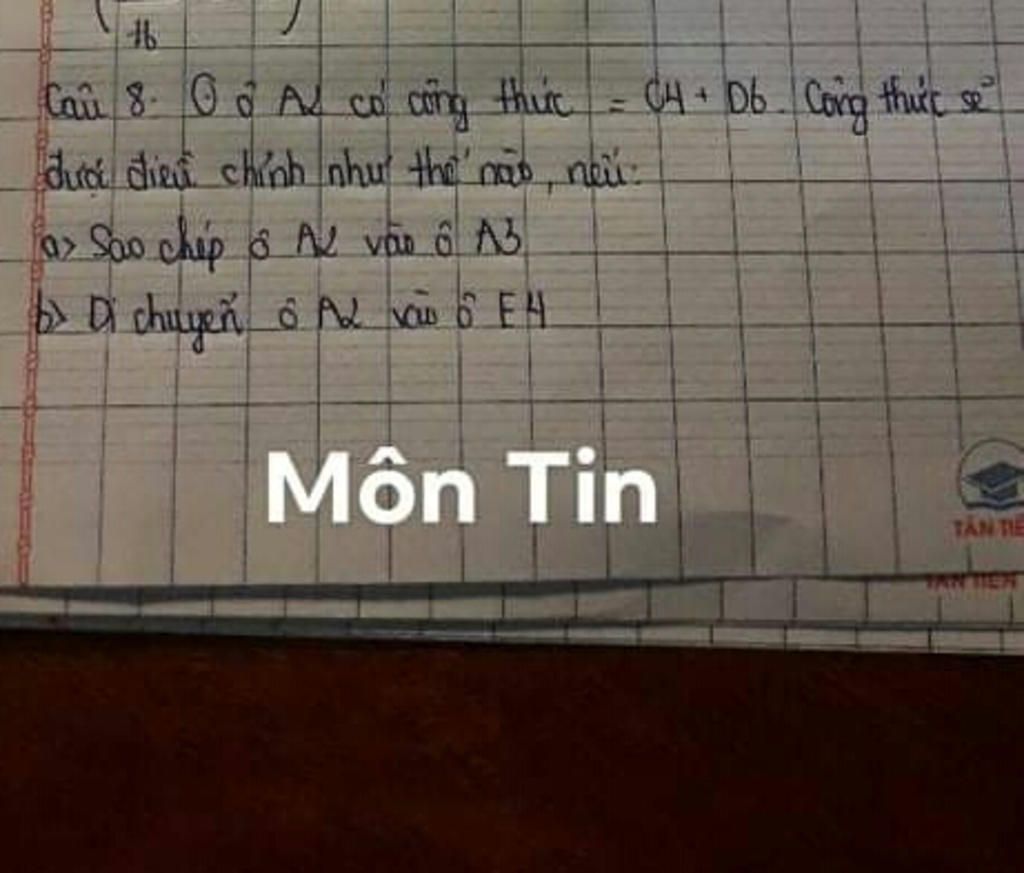 16
Câu 8. Ở ô A2 có công thức = C4 + D6. Công thức sẽ
được điều chỉnh như thế nào, nếu:
a> Sao chép ô A2 vào ô A3
b> Di chuyển ô A2 vào ô E4
Môn Tin
TÂN TIẾ
TÂN TIẾN